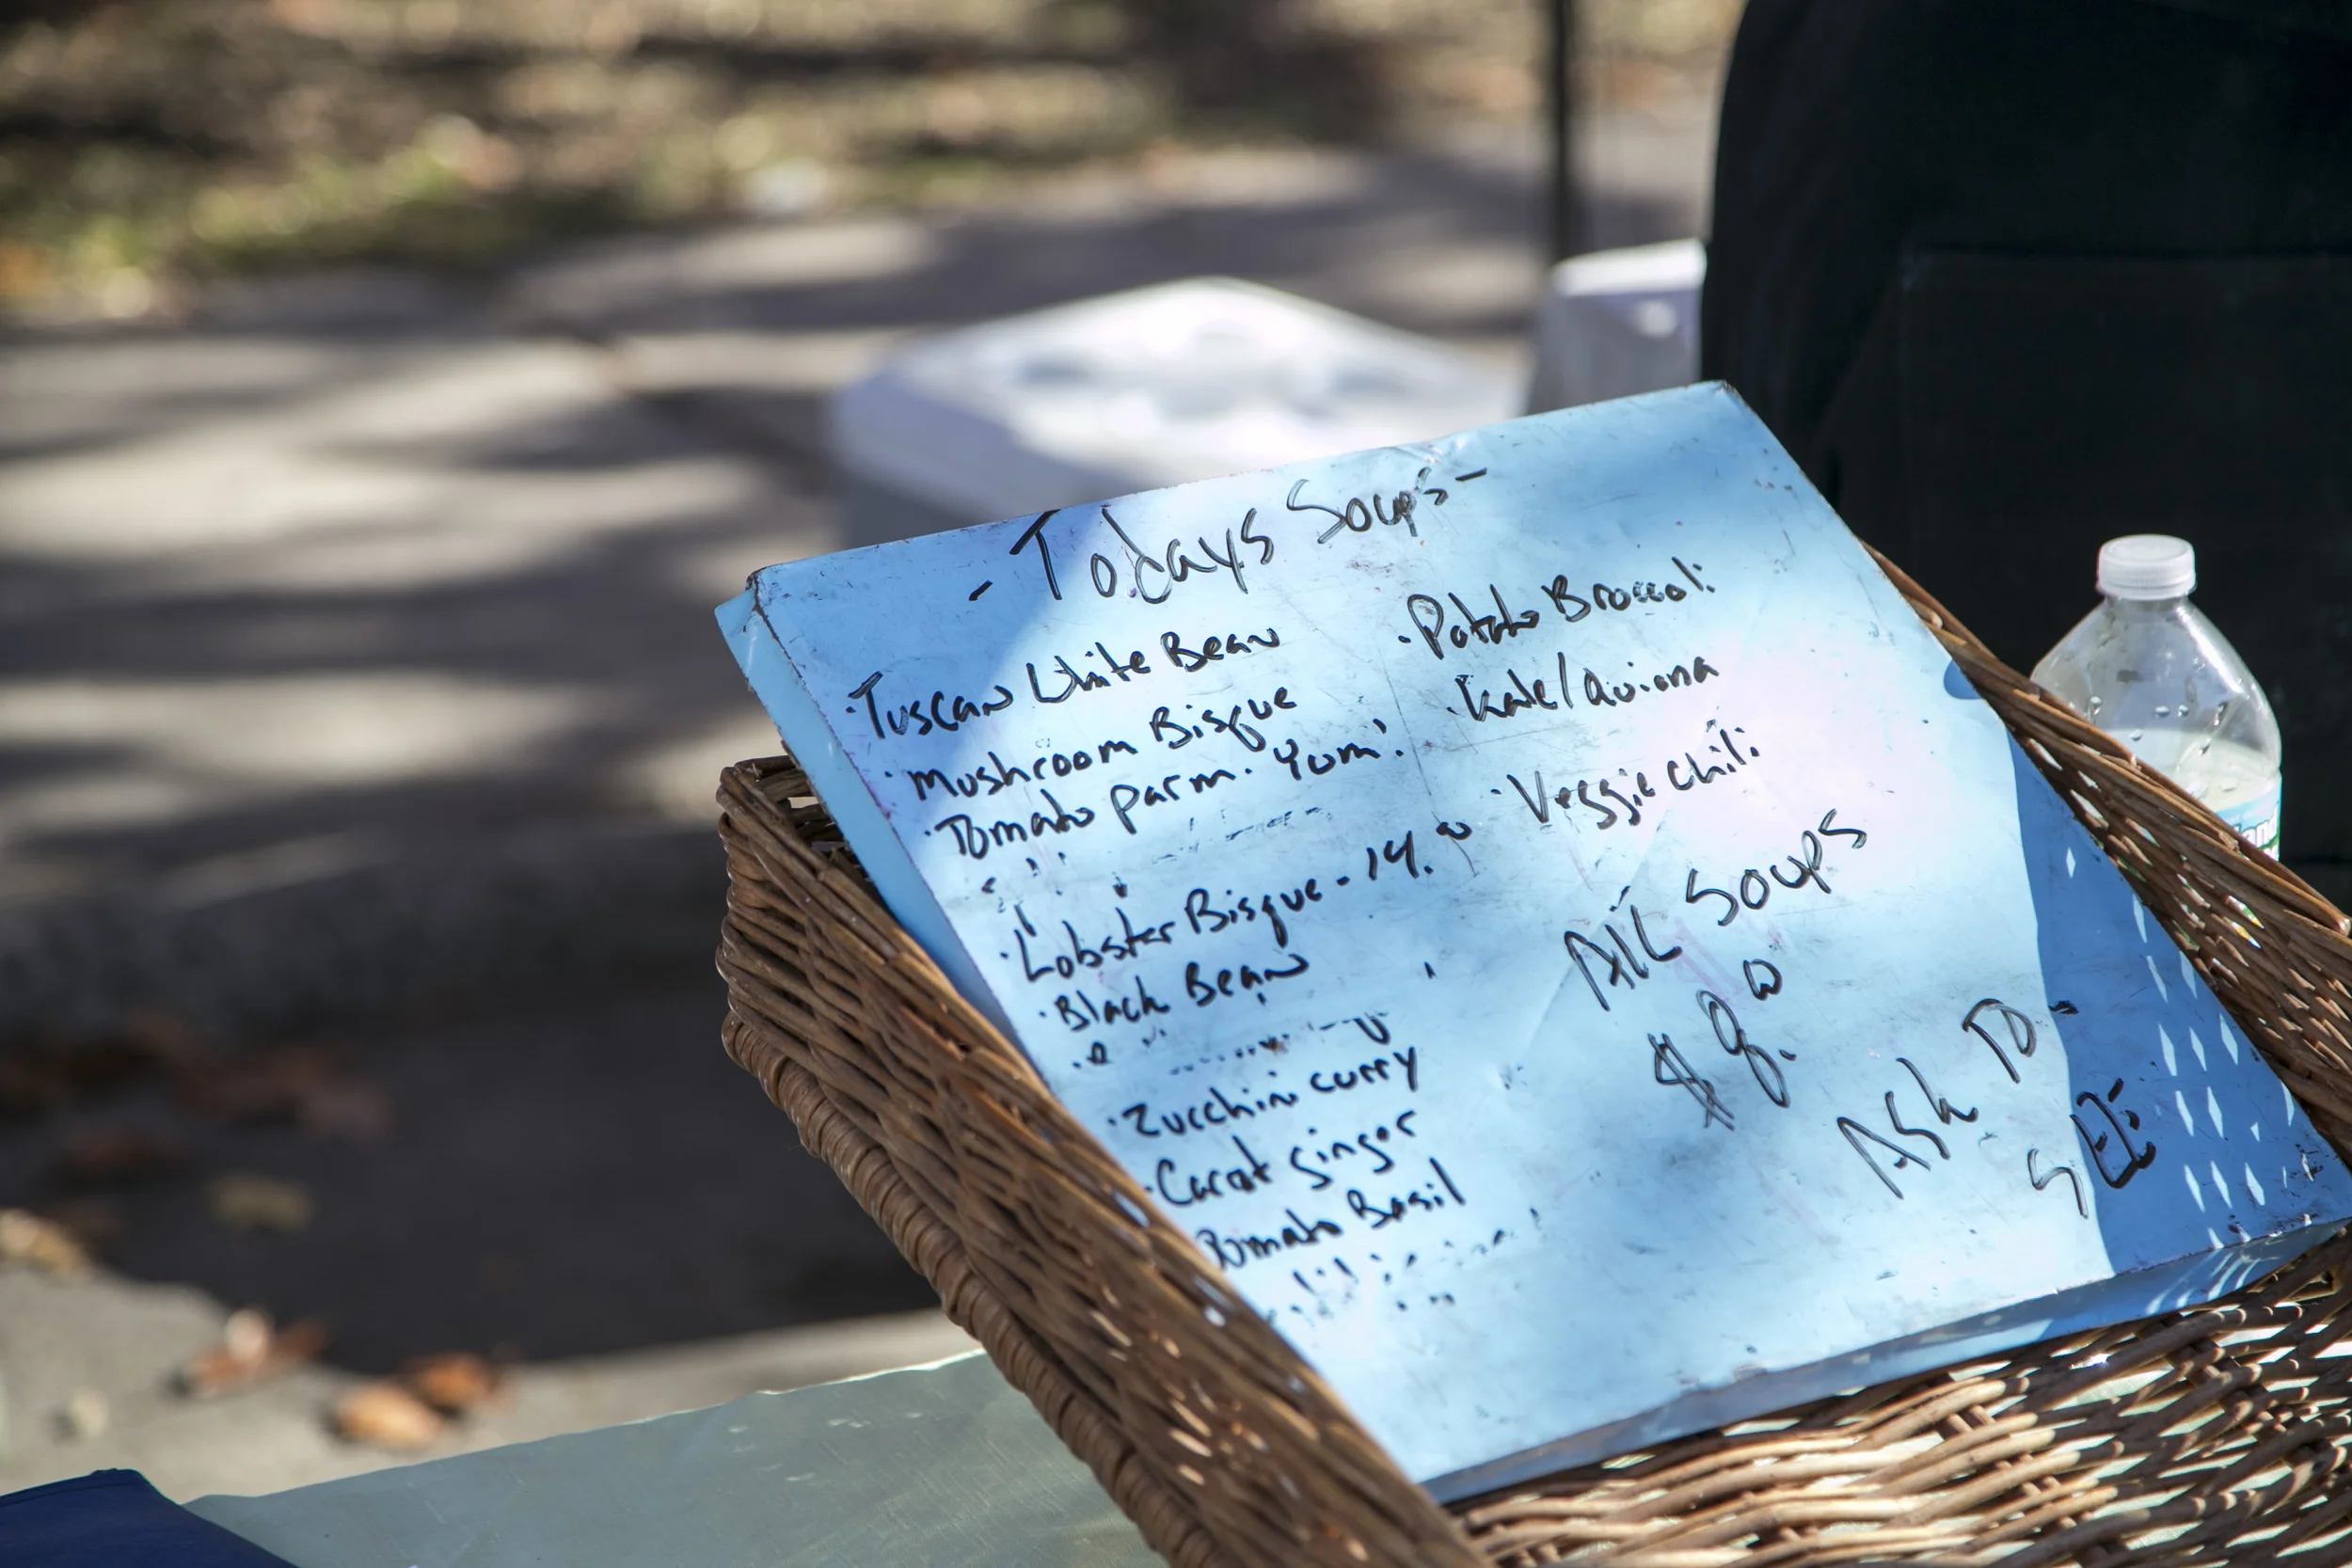 - Todays Soups -
· Tuscan White Bean
· Mushroom Bisque
· Tomato Parm. Yum!
· Lobster Bisque - 14.00
· Black Bean
· Zucchini curry
· Carot Ginger
Tomato Basil
· Potato Broccoli
· Kale/Quiona
· Veggie Chili
All Soups
$8.00
Ask To -
SEE